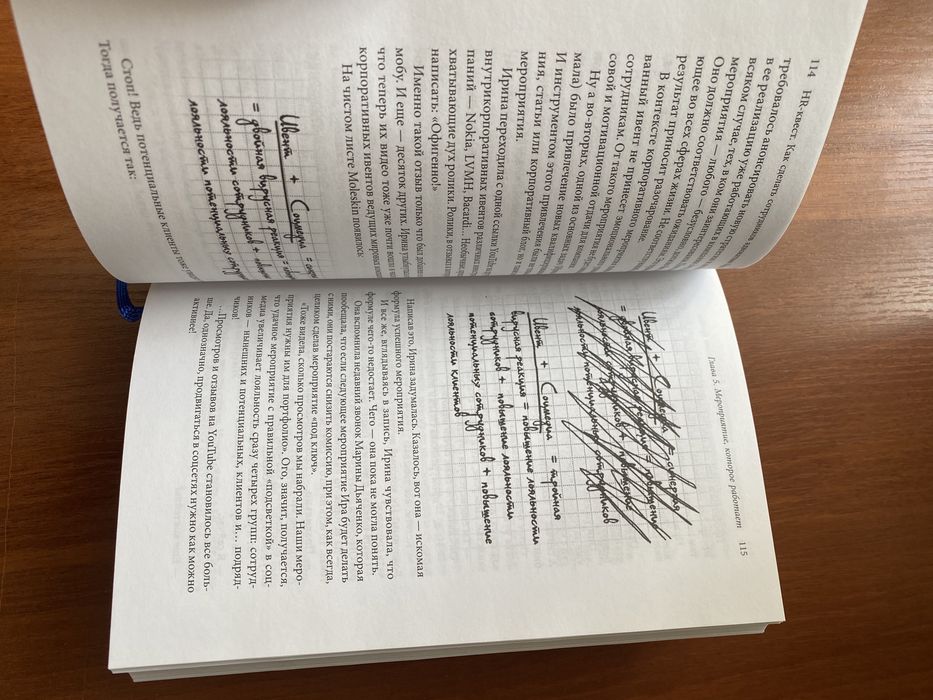 114 HR-квест. Как сделать сотрудников
требовалось анонсировать новую
в ее реализацию уже работающих
всяком случае, тех, в ком они заинт
мероприятия. Оно должно соответство
Оно должно — любого — безус
ющее во всех сферах
результат приносит разочарование.
В контексте корпоративного
ванный ивент не принесет
сотрудникам. От такого мероприятия
совой и мотивационной отдачи
Ну а во-вторых, одной из основных
мала) было привлечение новых
И инструментом этого привлечения
ния, статьи или корпоративный блог, но
мероприятия.
Ирина переходила с одной ссылки YouTube
внутрикорпоративных ивентов различных
паний — Nokia, LVMH, Bacardi... Необычные
хватывающие дух ролики. Ролики, в отзывах
написать: «Офигенно!»
Именно такой отзыв только что был
мобу. И еще — десяток других. Ирина
что теперь их видео тоже уже почти
корпоративных ивентов ведущих мировых
На чистом листе Moleskin появилось:
Ивент + Соцмедиа =
= двойная вирусная реакция =
лояльности сотрудников +
лояльности потенциальных
Стоп! Ведь потенциальные клиенты тоже
Тогда получается так:
Глава 5. Мероприятие, которое работает 115
Ивент + Соцмедиа =
= двойная вирусная реакция = повышение
лояльности сотрудников + повышение
лояльности потенциальных сотрудников
Ивент + Соцмедиа = тройная
вирусная реакция = повышение лояльности
сотрудников + повышение лояльности
потенциальных сотрудников + повышение
лояльности клиентов
Написав это, Ирина задумалась. Казалось, вот она — искомая
формула успешного мероприятия.
И все же, вглядываясь в запись, Ирина чувствовала, что
формуле чего-то недостает. Чего — она пока не могла понять.
Она вспомнила недавний звонок Марины Дьяченко, которая
пообещала, что если следующее мероприятие Ира будет делать
с ними, они постараются снизить комиссию, при этом, как всегда,
целиком сделав мероприятие «под ключ».
«Тоже видела, сколько просмотров мы набрали. Наши меро-
приятия нужны им для портфолио». Ого, значит, получается,
что удачное мероприятие с правильной «подсветкой» в соц-
медиа увеличивает лояльность сразу четырех групп: сотруд-
ников — нынешних и потенциальных, клиентов и... подряд-
чиков!
...Просмотров и отзывов на YouTube становилось все боль-
ше. Да, однозначно, продвигаться в соцсетях нужно как можно
активнее!